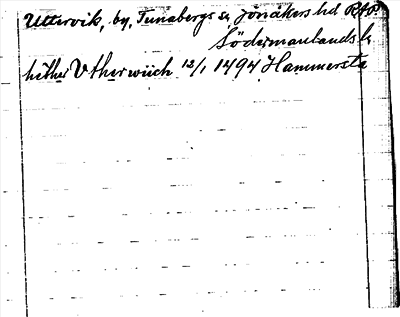 Uttervik, by, Tunabergs sn, Jönåkers hd
Södermanlands l.
hether Vtherwiich 12/1 1494 Hammersta